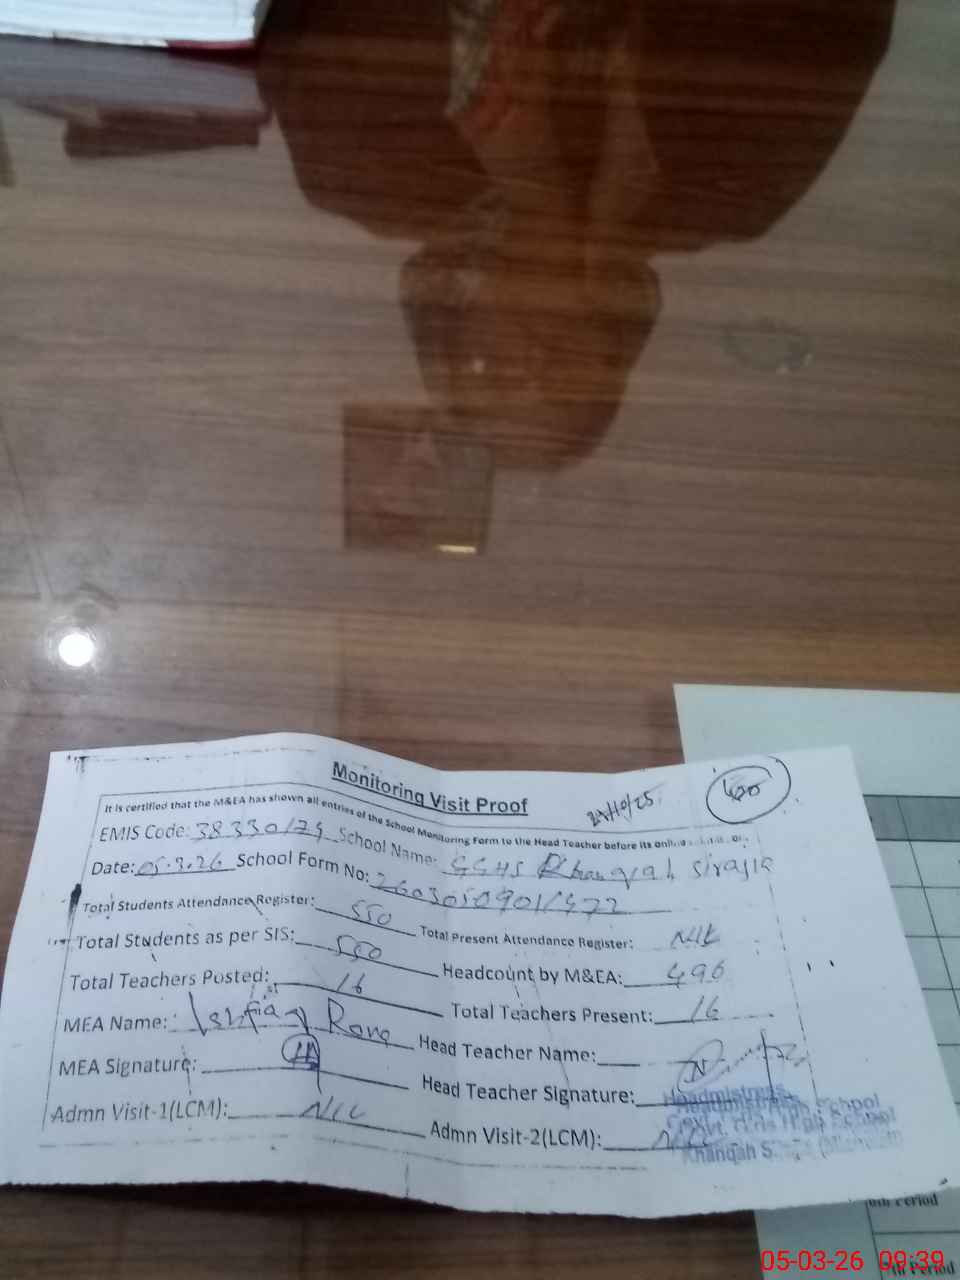 Monitoring Visit Proof
21/10/25
It is certified that the M&EA has shown all entries of the School Monitoring Form to the Head Teacher before its online
EMIS Code: 38330179 School Name: GGHS Khanqah Sirajia
Date: 05.3.26 School Form No: 2603050901/472
Total Students Attendance Register: 550 Total Present Attendance Register: NIL
Total Students as per SIS: 550 Headcount by M&EA: 496
Total Teachers Posted: 16 Total Teachers Present: 16
MEA Name: Ishfaq Rana Head Teacher Name:
MEA Signature: Head Teacher Signature:
Admn Visit-1(LCM): NIL Admn Visit-2(LCM): NIL
Headmistress
Govt. Girls High School
Khanqah
8th Period
05-03-26 09:39